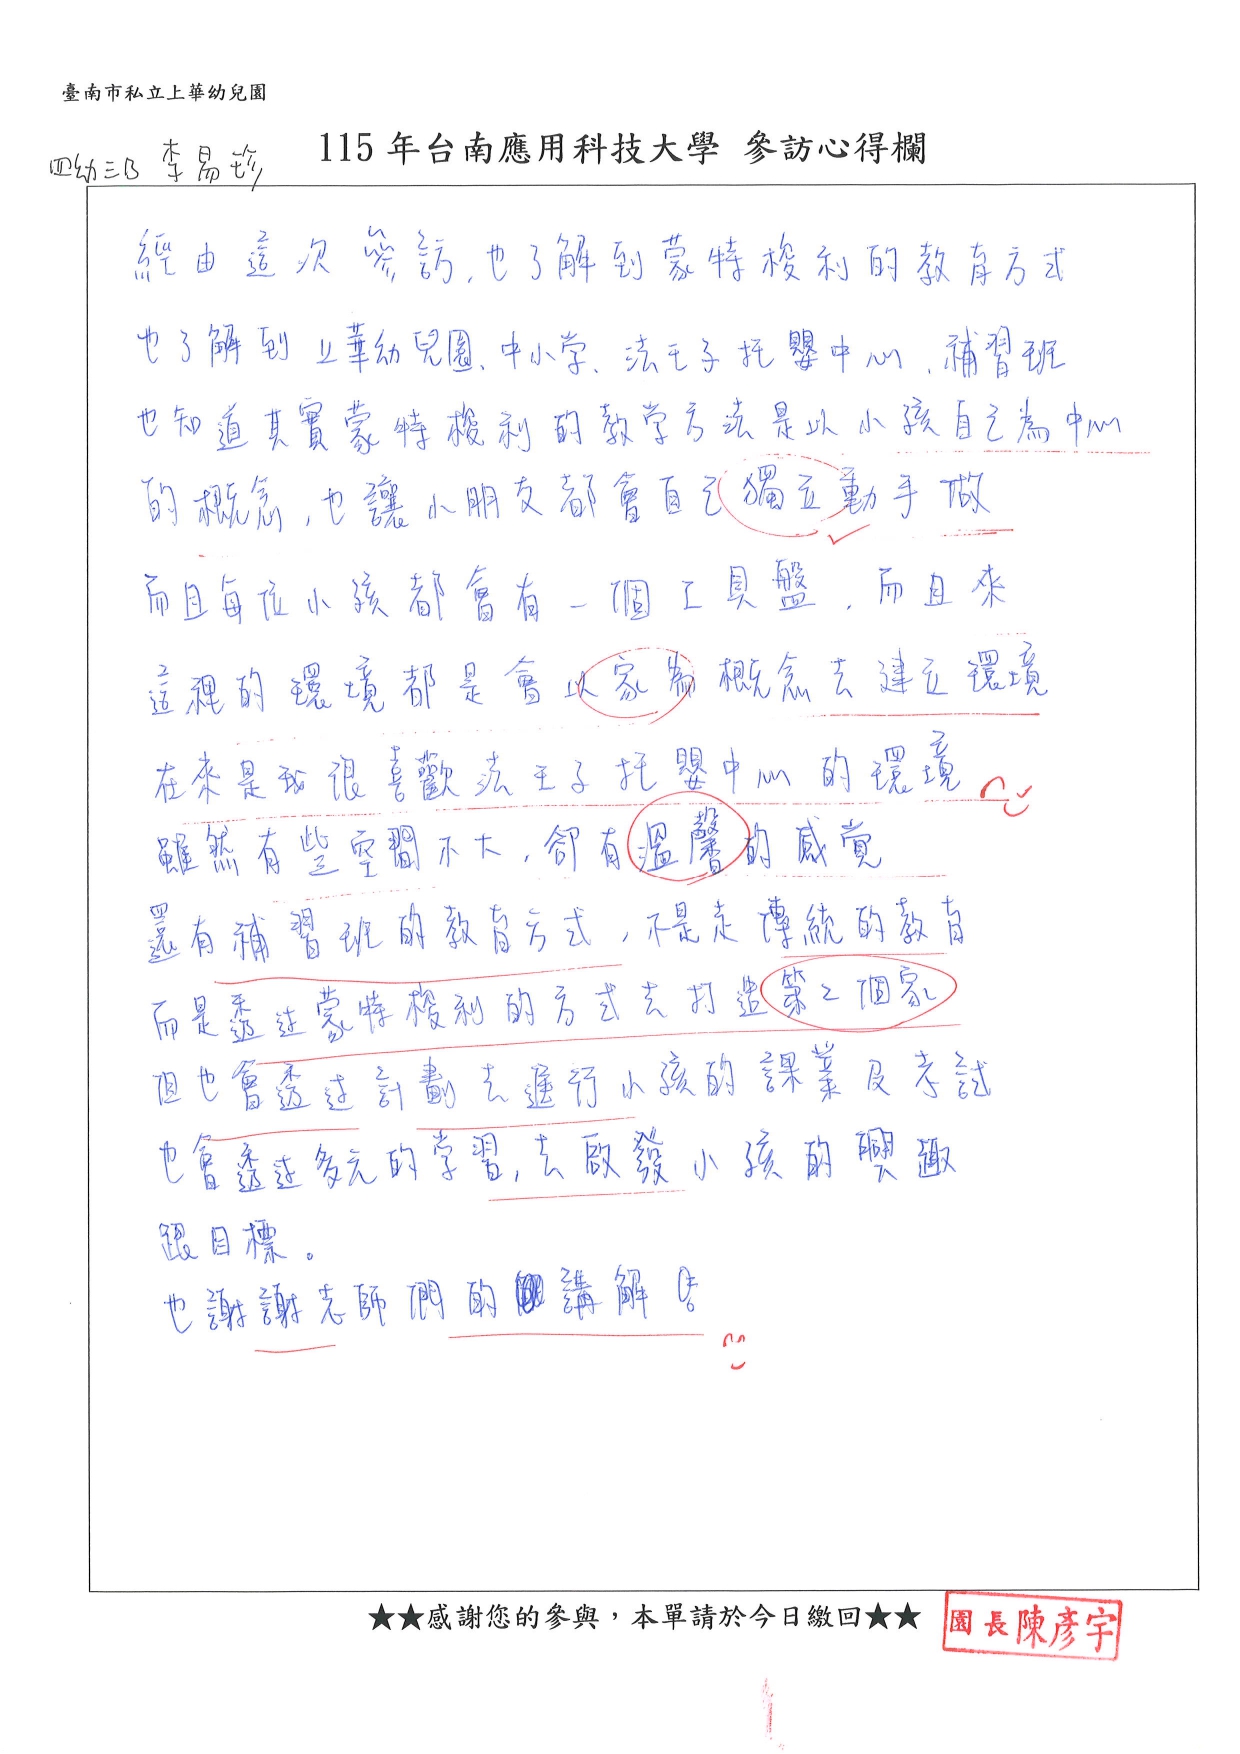 臺南市私立上華幼兒園
115 年台南應用科技大學 參訪心得欄
四幼三B 李易珍
經由這次參訪,也了解到蒙特梭利的教育方式
也了解到上華幼兒園、中小学、法王子托嬰中心、補習班
也知道其實蒙特梭利的教学方法是以小孩自己為中心
的概念,也讓小朋友都會自己獨立動手做
而且每位小孩都會有一個工具盤,而且來
這裡的環境都是會以家為概念去建立環境
在來是我很喜歡法王子托嬰中心的環境
雖然有些空間不大,卻有溫馨的感覚
還有補習班的教育方式,不是走傳統的教育
而是透过蒙特梭利的方式去打造第2個家
但也會透过計劃去進行小孩的課業及考試
也會透过多元的学習,去啟發小孩的興趣
跟目標。
也謝謝老師們的講解
★★感謝您的參與,本單請於今日繳回★★
園長陳彥宇